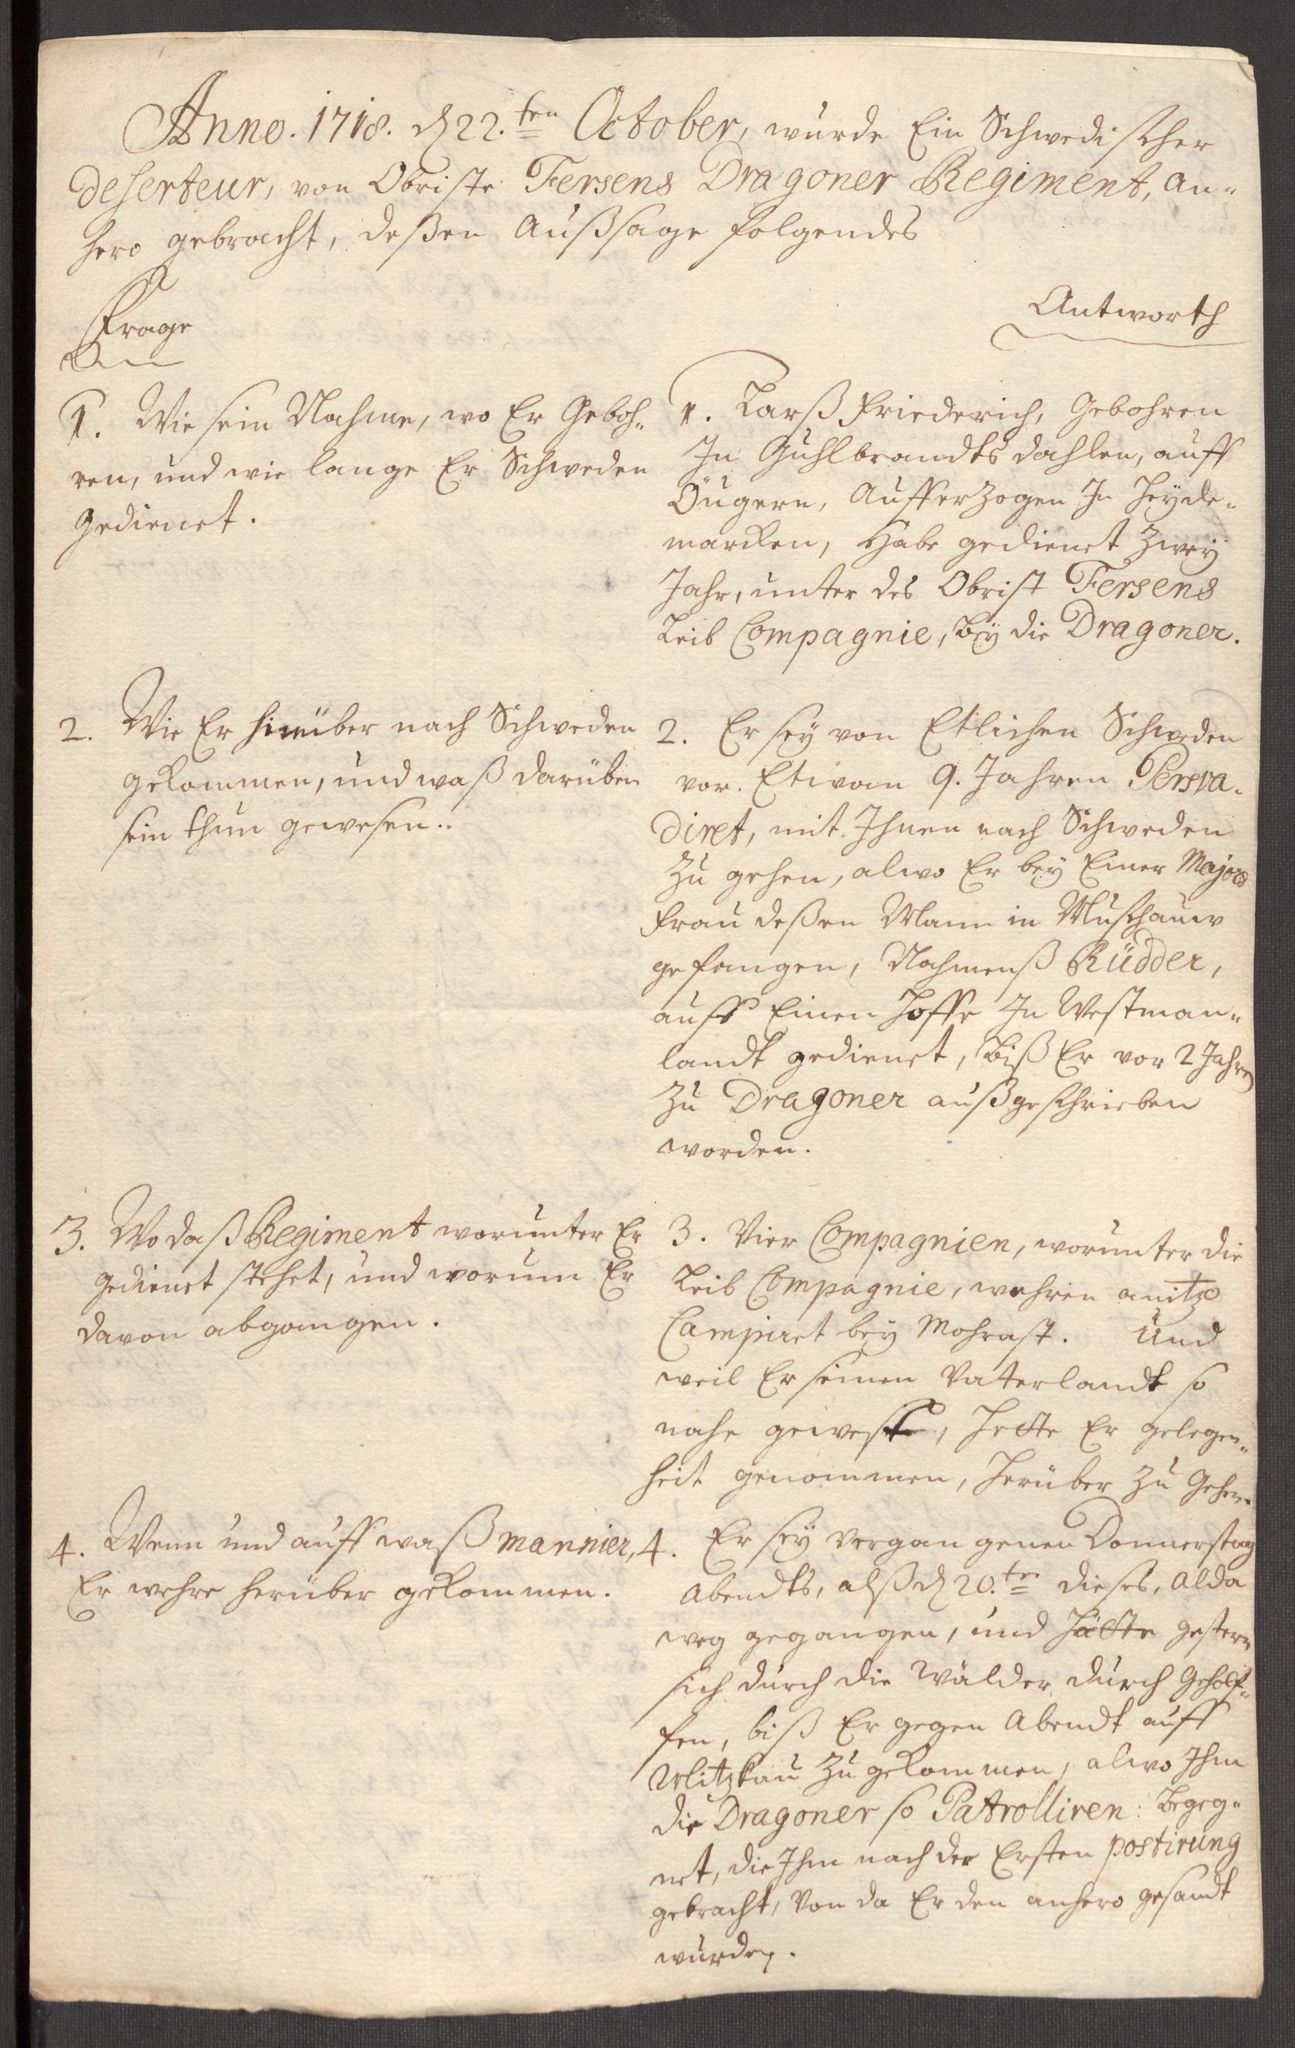 Anno. 1718. d 22.ten October, wurde Ein Schwedischer
deserteur, von Obriste Fersens Dragoner Regiment, an-
hero gebracht, deßen Außsage folgendes
Frage
1. Wie sein Nahme, wo Er Geboh-
ren, und wie lange Er Schweden
gedienet.
2. Wie Er hinüber nach Schweden
gekommen, und waß darüben
sein thun gewesen..
3. Wo daß Regiment worunter Er
gedienet stehet, und worum Er
davon abgangen.
4. Wenn und auff waß mannier,
Er wehre herüber gekommen.
Antworth
1. Larß Friederich, Gebohren
In Guhlbrandts dahlen, auff
Öugern, Aufferzogen In Heyde-
marcken, Habe gedienet zwey
Jahr, unter des Obrist Fersens
Leib Compagnie, bey die Dragoner.
2. Er sey von Etlichen Schweden
vor. Etwan 9. Jahren Persva-
diret, mit Ihnen nach Schweden
zu gehen, alwo Er bey Einer Majors
frau deßen Mann in Muschauw
gefangen, Nahmenß Rüdder,
auff Einen Hoffe In Westman-
landt gedienet, biß Er vor 2 Jahren
zu Dragoner außgeschrieben
worden.
3. Vier Compagnien, worunter die
Leib Compagnie, wehren anitzo
Campiret bey Mohrast. Und
weil Er seinen Vaterlandt so
nahe gewest, hette Er gelegen-
heit genommen, herüber zu Gehen.
4. Er sey vergangenen Donnerstag
Abendts, alß d 20.ten dieses, alda
weg gegangen, und hätte gestern
sich durch die Wälder durch Geholf-
fen, biß Er gegen Abendt auff
Mitzkau zu gekommen, alwo Ihm
die Dragoner so Patrolliren: begeg-
net, die Ihm nach der Ersten postirung
gebracht, von da Er den anhero gesandt
wurden.